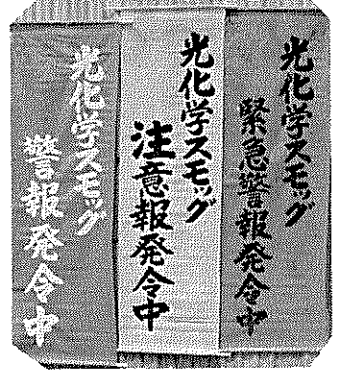 光化学スモッグ
緊急警報発令中
光化学スモッグ
注意報発令中
光化学スモッグ
警報発令中